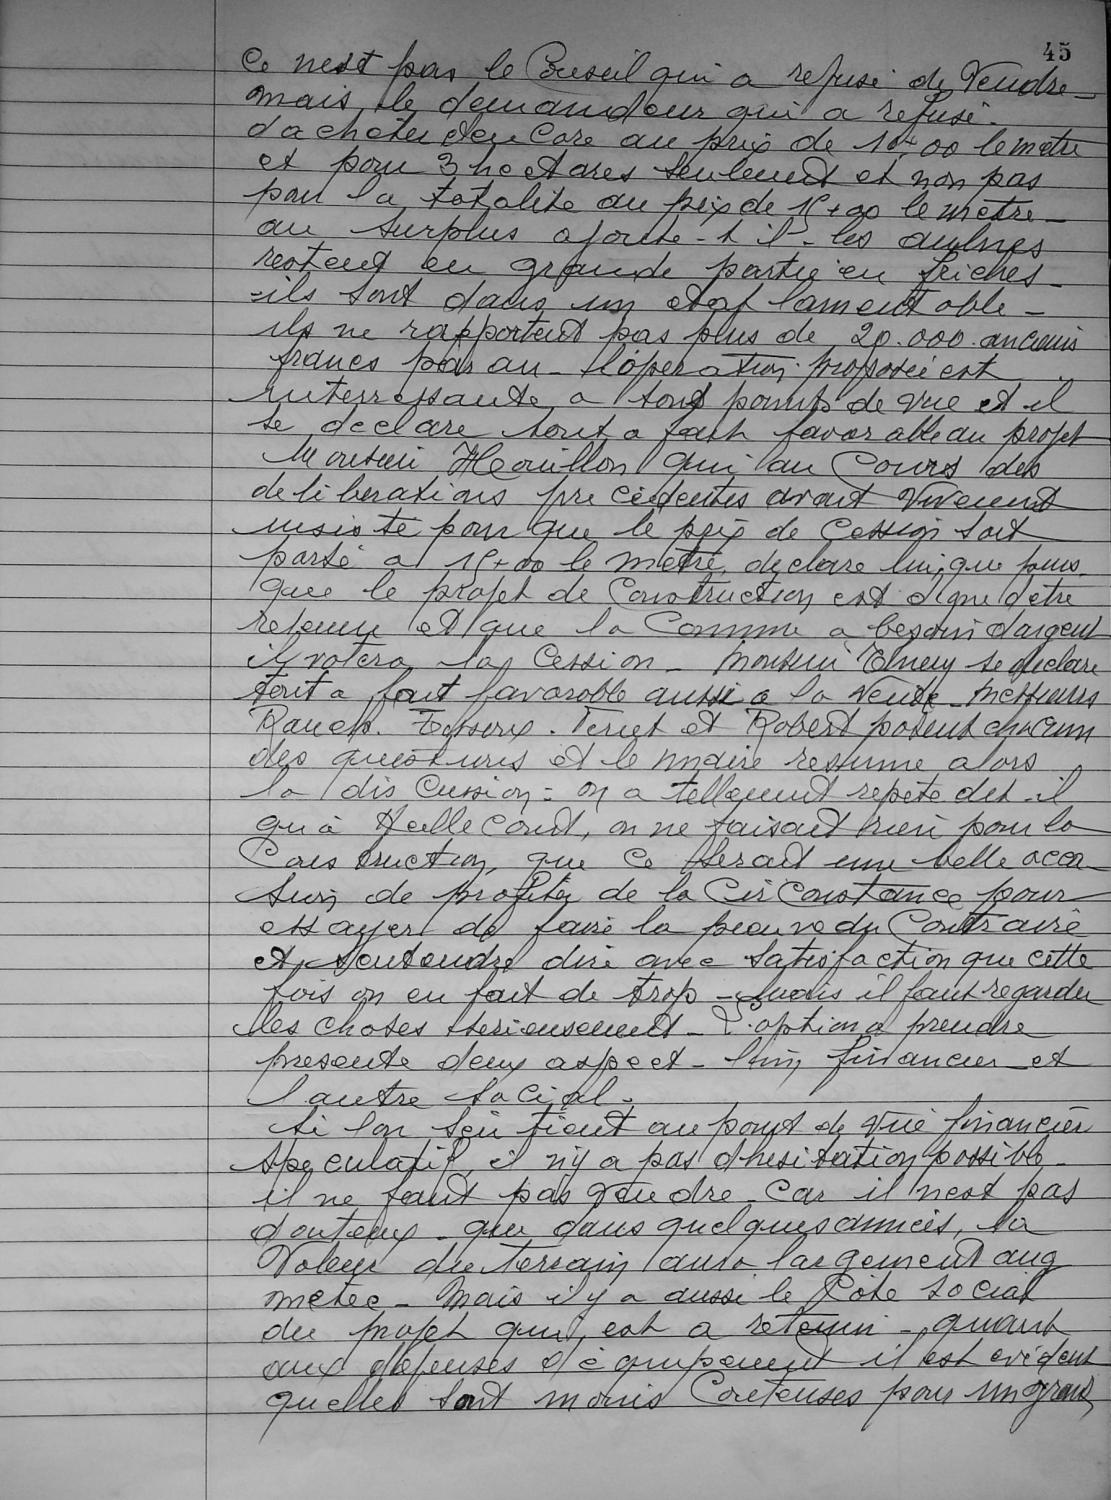 45
Ce nest pas le Conseil qui a refusé de Vendre -
mais le demandeur qui a refusé.
dacheter encore au prix de 10+00 le metre
et pour 3 hectares seulement et non pas
pour la totalité au prix de 15+00 le metre -
au surplus ajoute-t-il - les aulnes
restent en grande partie en friches -
ils sont dans un etat lamentable -
ils ne rapportent pas plus de 20.000 anciens
francs par an - l'operation proposée est
interressante a tout points de vue et il
se declare tout a fait favorable au projet
Monsieur Houillon qui au Cours des
deliberations precedentes avait vivement
insisté pour que le prix de Cession soit
porté a 15+00 le metre, declare lui, que puis
que le projet de Construction est digne d'etre
retenu et que la Commune a besoin d'argent
il votera la Cession - Monsieur se declare
tout a fait favorable aussi a la vente - Messieurs
et Robert posent chacun
des questions et le maire resume alors
la discussion = on a tellement repeté dit-il
qu'à Heillecourt, on ne faisait rien pour la
Construction, que ce serait une belle occa
sion de profiter de la Circonstance pour
essayer de faire la preuve du Contraire
et sentendre dire avec satisfaction que cette
fois on en fait de trop - Mais il faut regarder
les choses serieusement - L'option a prendre
presente deux aspect - l'un financier et
l'autre social.
Si l'on s'en tient au point de vue financier
speculatif, il n'y a pas d'hesitation possible -
il ne faut pas vendre - car il n'est pas
douteux - que dans quelques années, la
Valeur du terrain aura largement aug
mentée - Mais il y a aussi le Coté social
du projet qui est a retenir - quant
aux depenses d'equipement il est evident
quelles sont moins Couteuses pour un grand